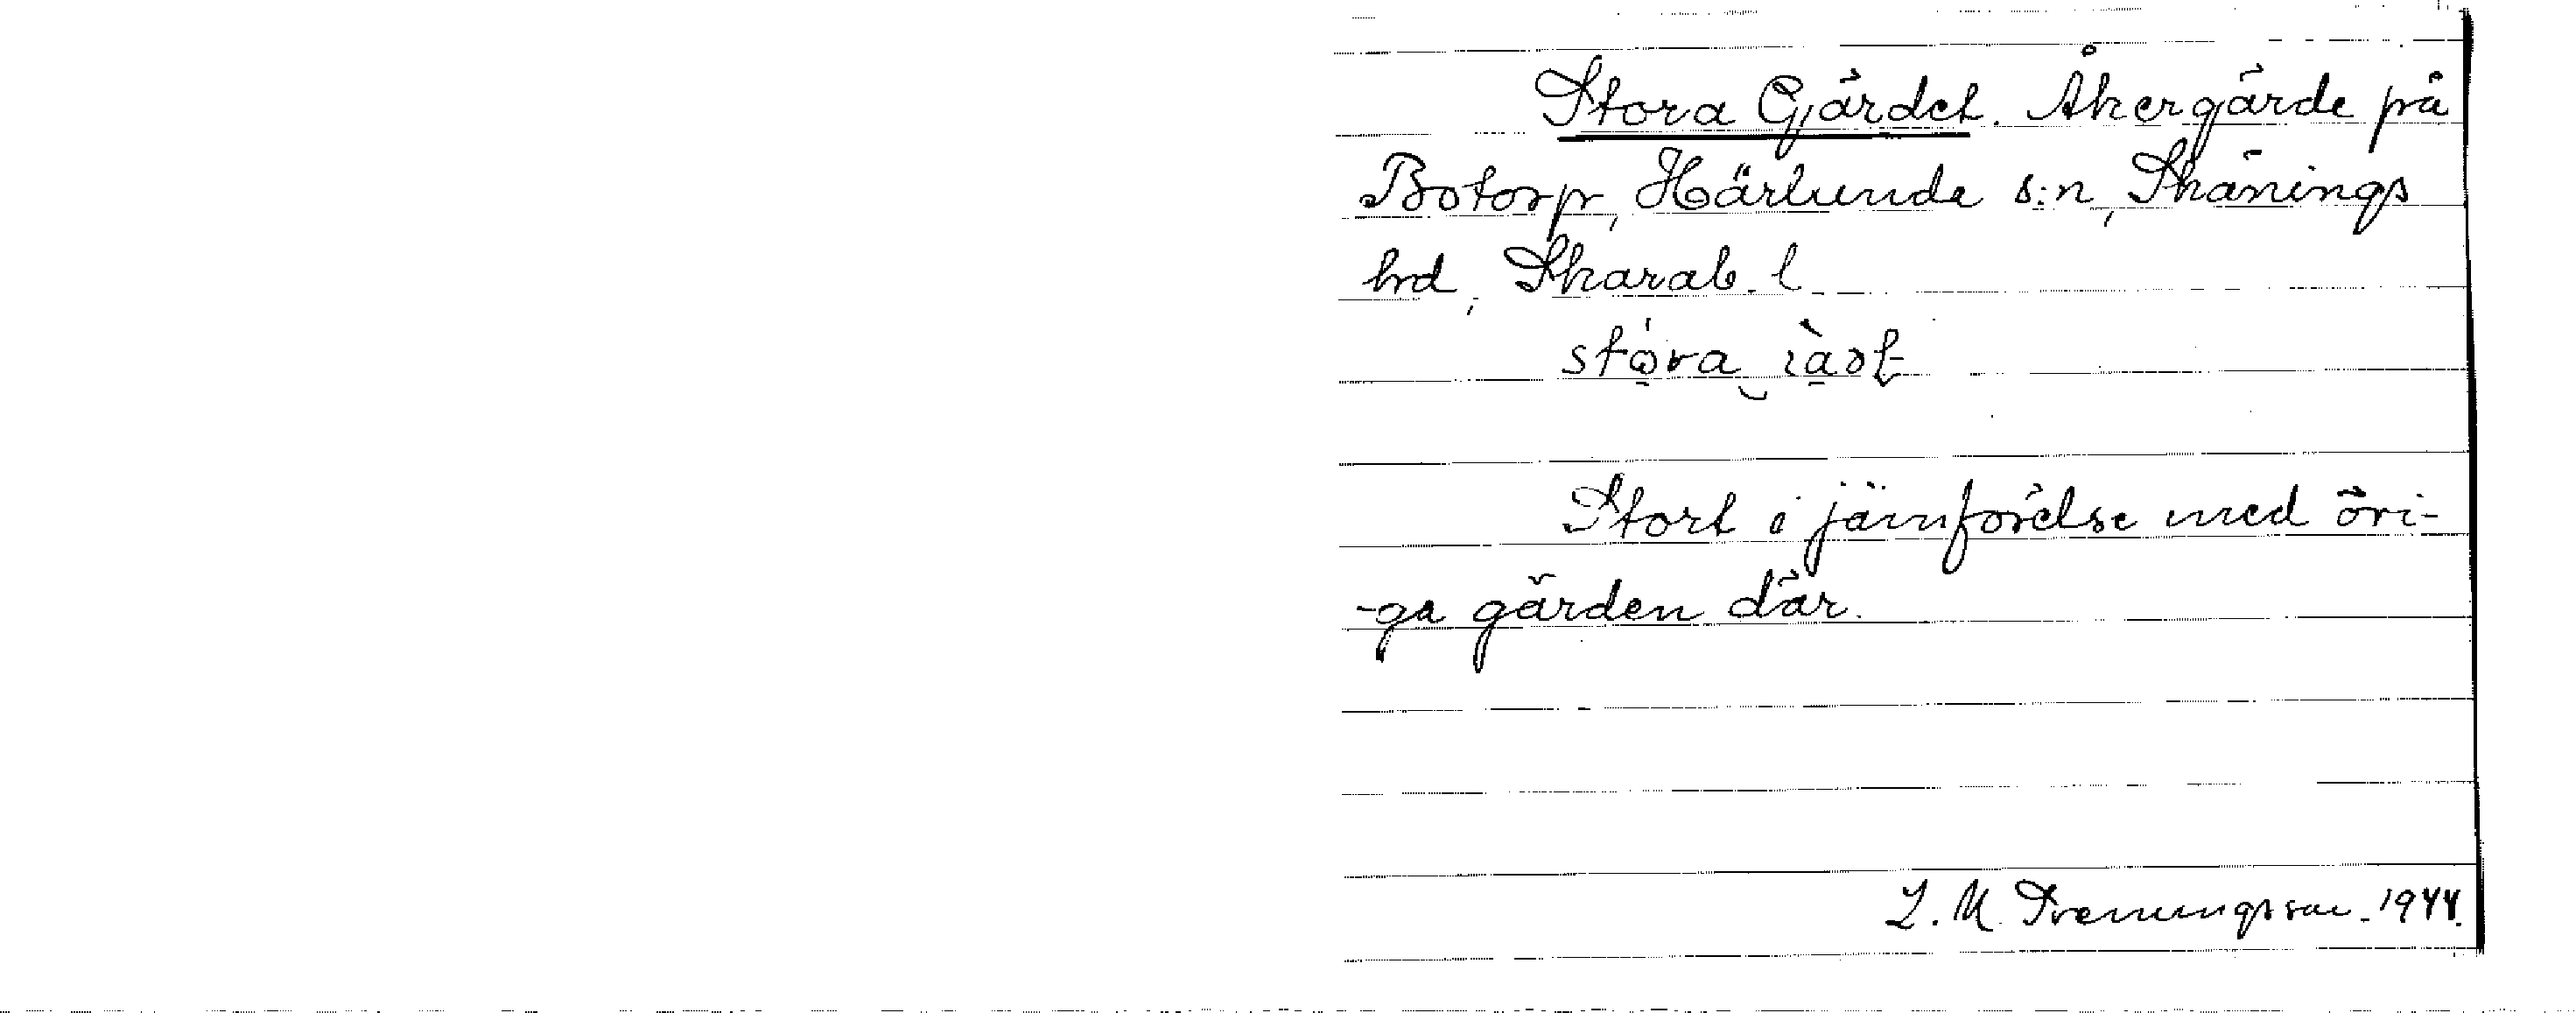 Stora Gjärdet. Åkergärde på
Botorp, Härlunda s:n, Skånings
hrd, Skarab. l
Stort i jämförelse med övri-
-ga gärden där.
L. M. 1944.